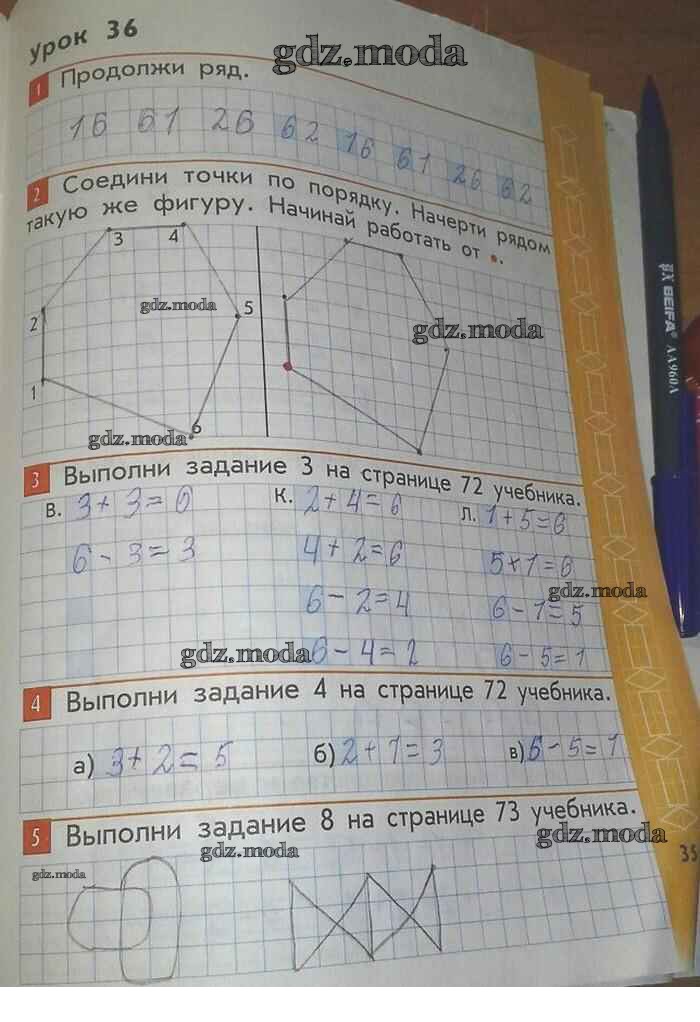 урок 36
gdz.moda
1 Продолжи ряд.
16 61 26 62 16 61 26 62
2 Соедини точки по порядку. Начерти рядом
такую же фигуру. Начинай работать от .
3 4
2 5
gdz.moda
gdz.moda
1
6
gdz.moda
3 Выполни задание 3 на странице 72 учебника.
В. 3+3=6 К. 2+4=6 Л. 1+5=6
6-3=3 4+2=6 5+1=6
gdz.moda
6-2=4 6-1=5
gdz.moda 6-4=2 6-5=1
4 Выполни задание 4 на странице 72 учебника.
а) 3+2=5 б) 2+1=3 в) 6-5=1
5 Выполни задание 8 на странице 73 учебника.
gdz.moda gdz.moda
gdz.moda
35
BEIFA AA960A